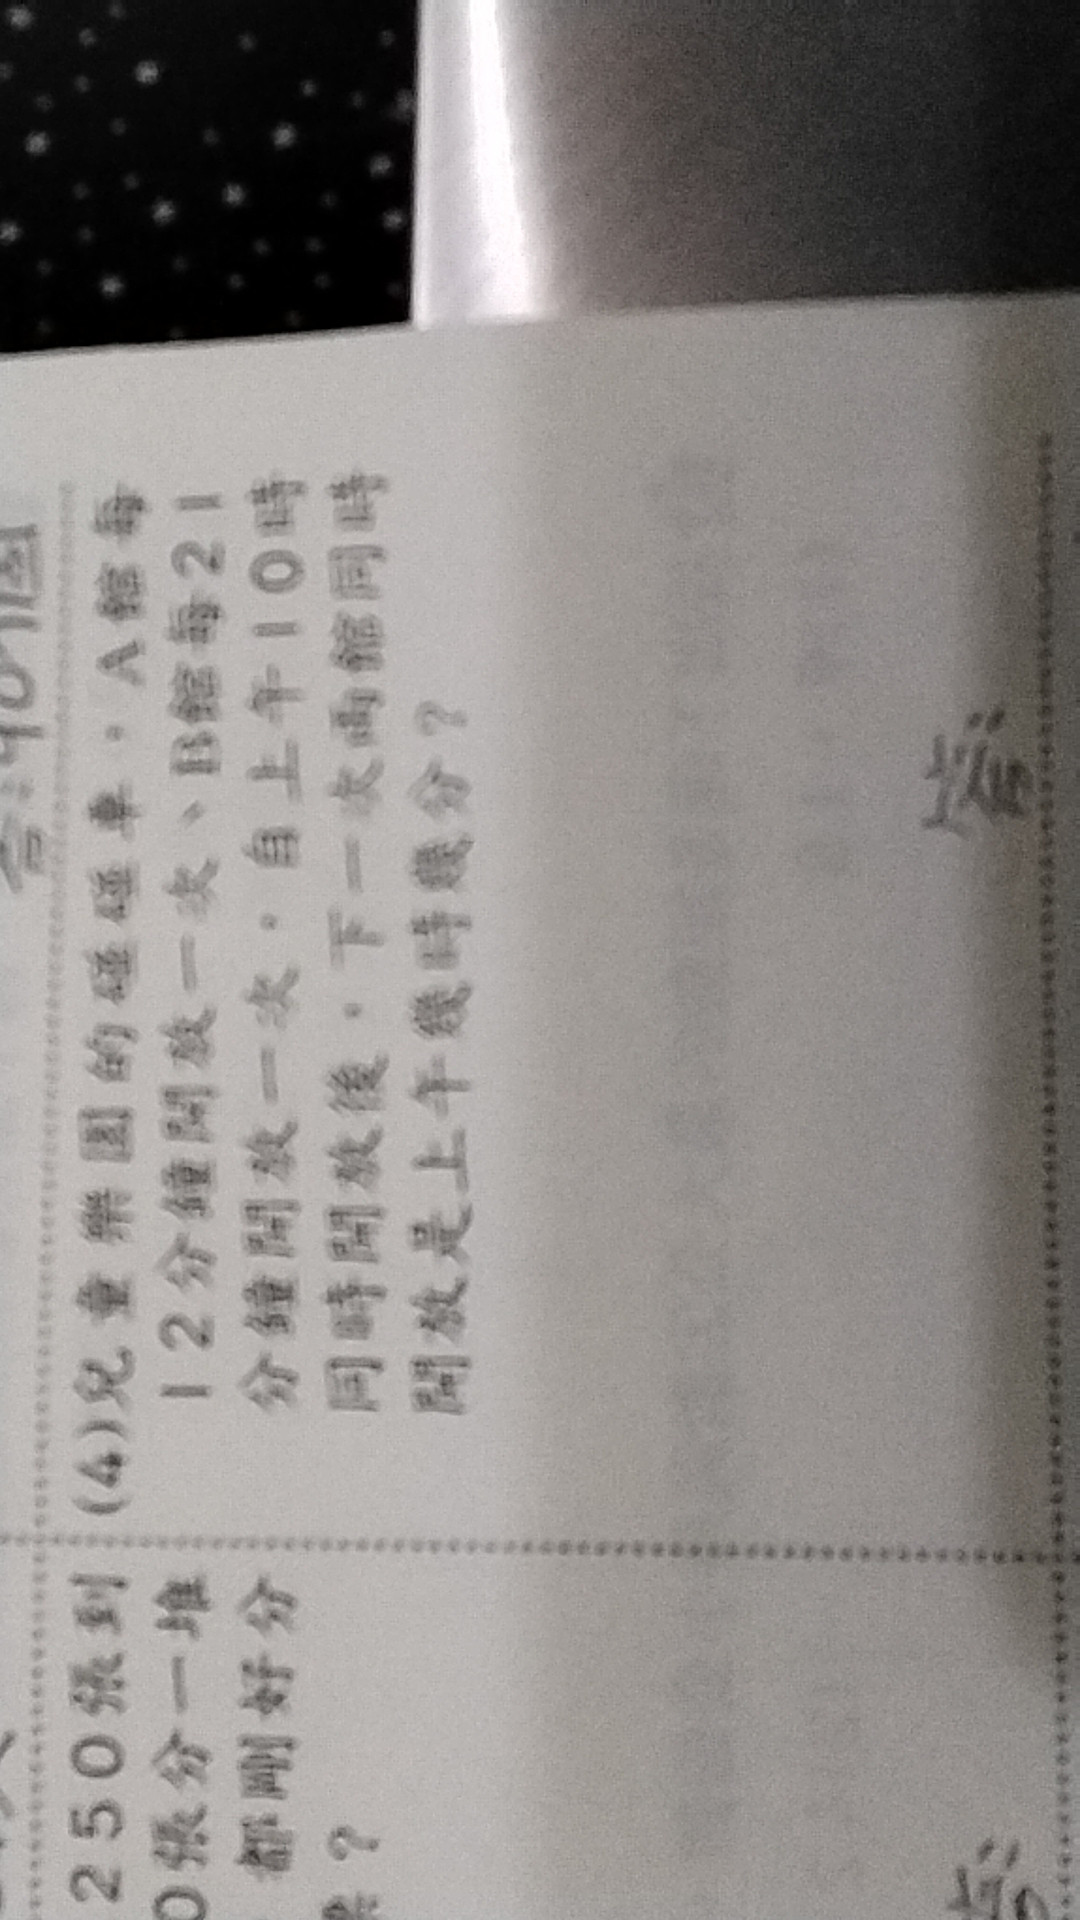 (4)兒童樂園的碰碰車，A館每
12分鐘開放一次、B館每21
分鐘開放一次，自上午10時
同時開放後，下一次兩館同時
開放是上午幾時幾分？
答：
250張到
0張分一堆
都剛好分
？
答：